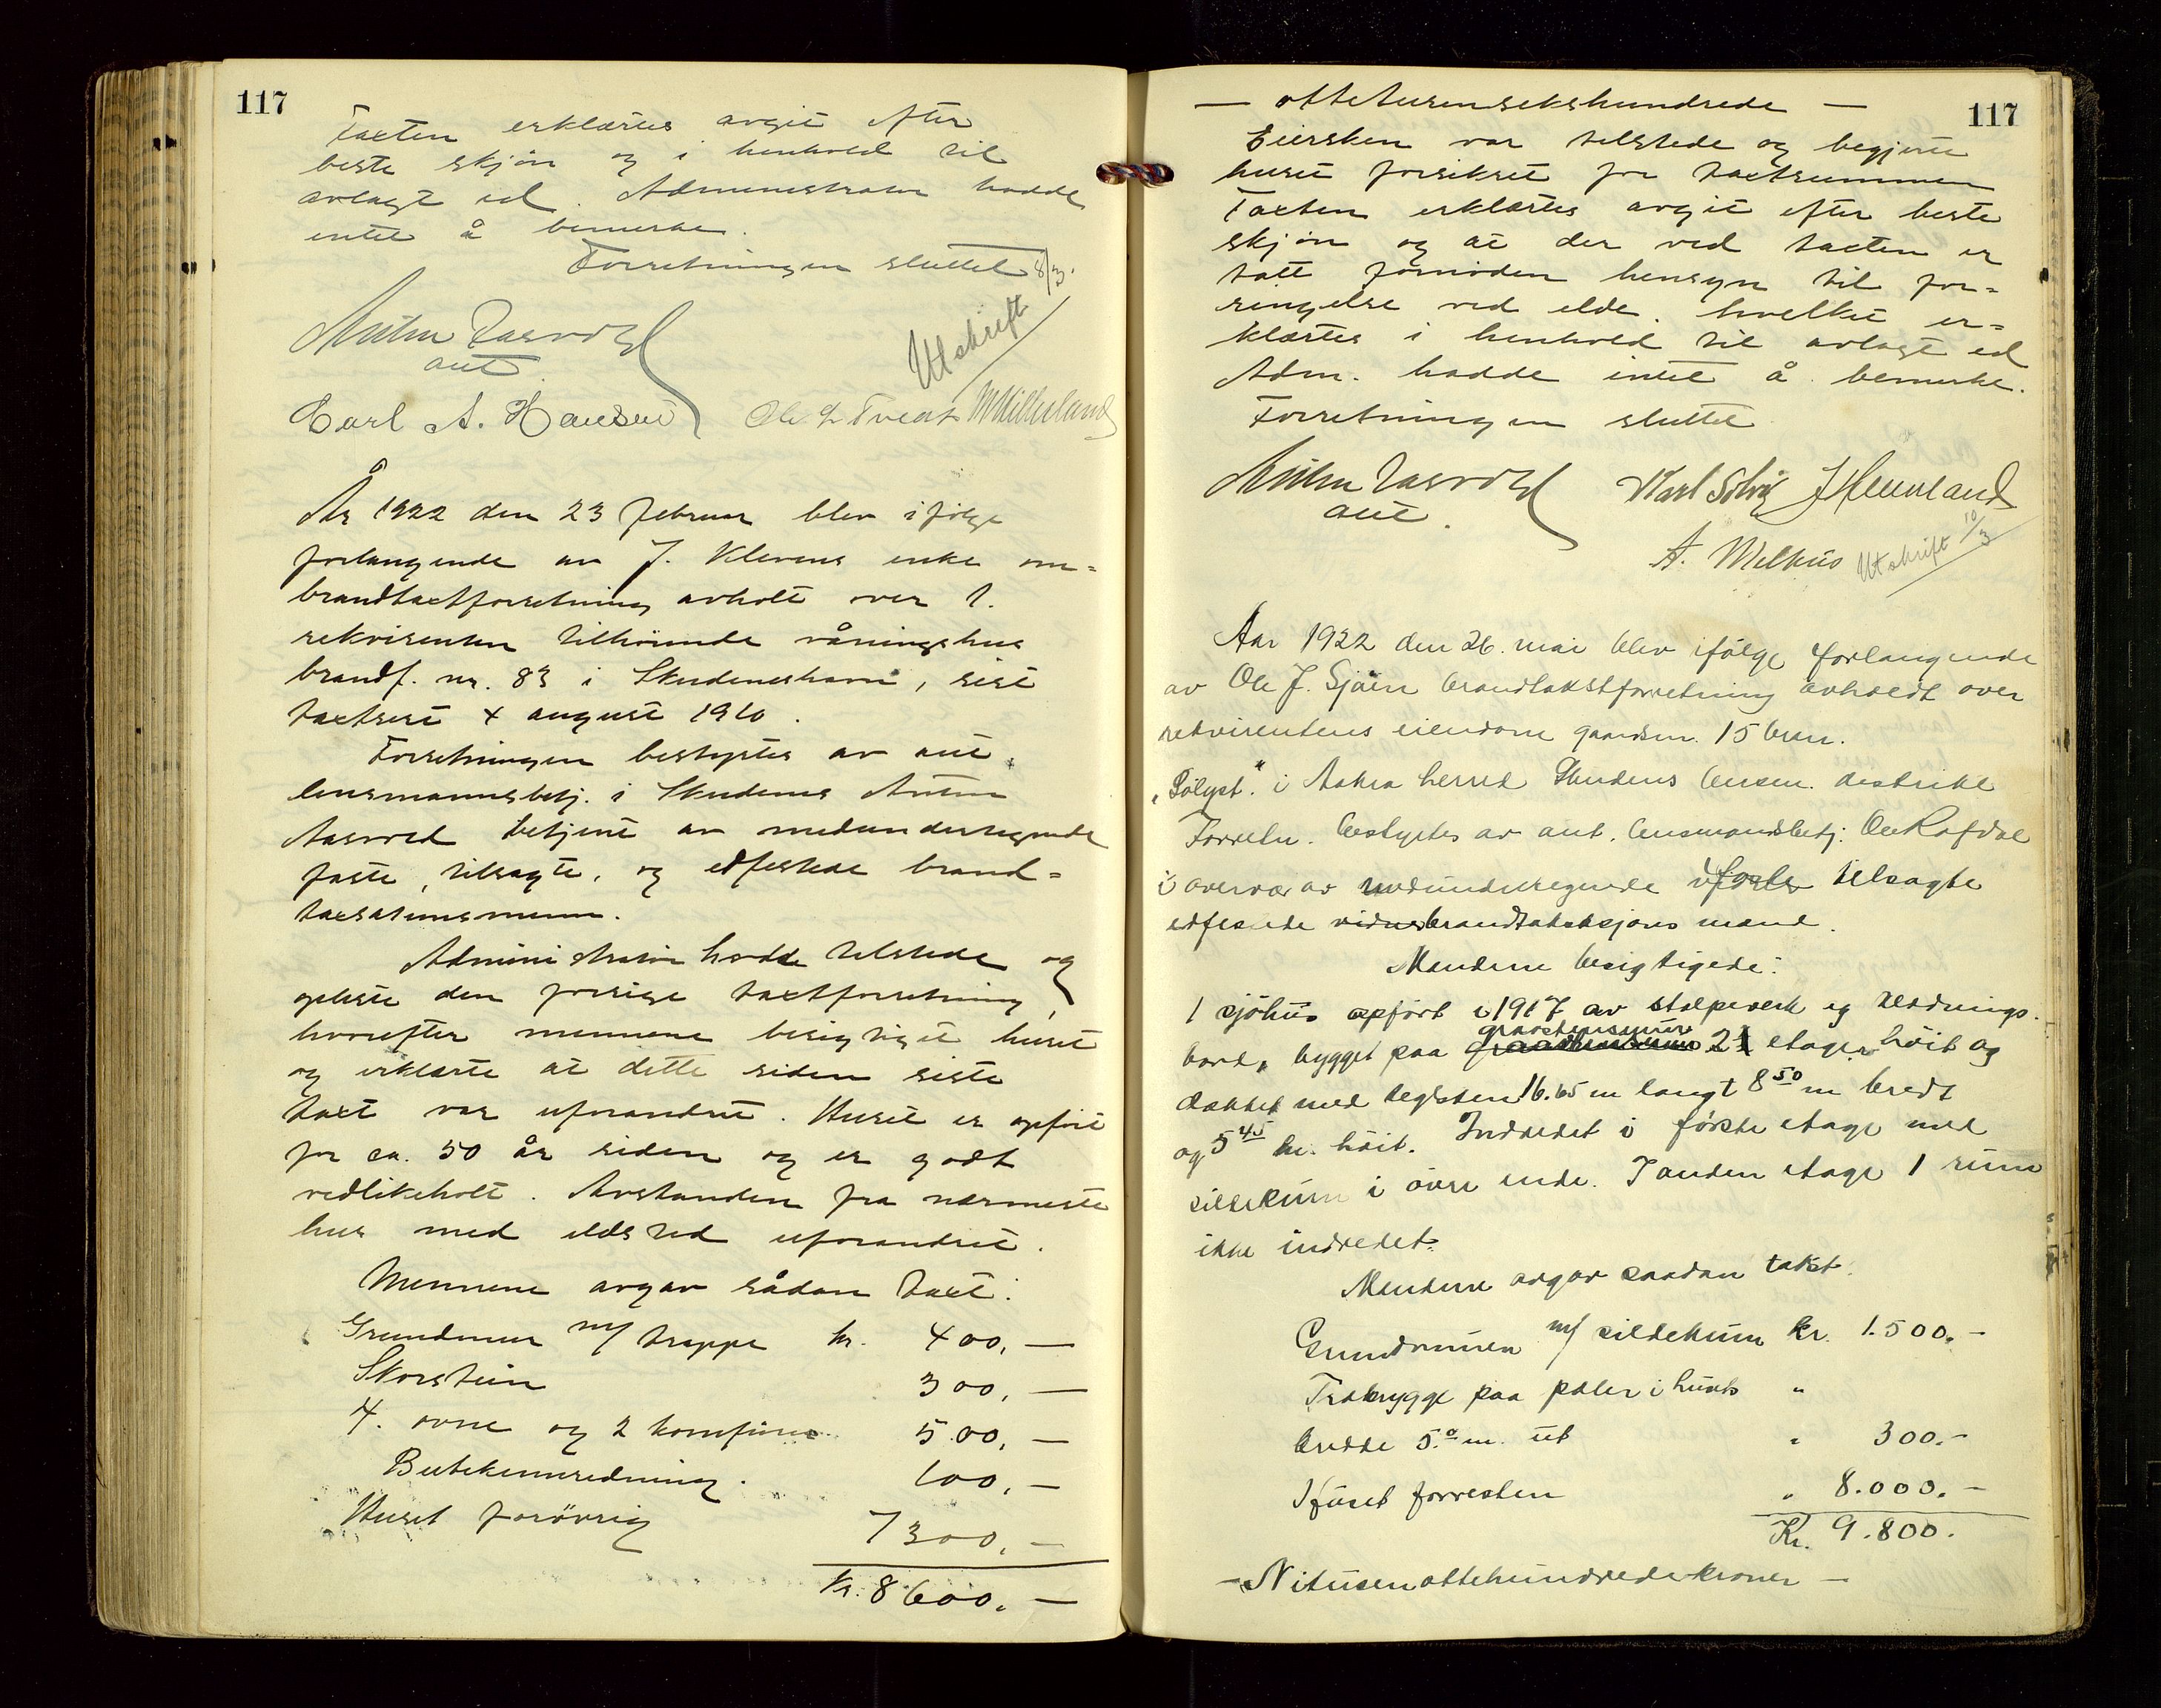 117
Taxten erklærtes avgit efter
beste skjøn og i henhold til
avlagt ed. Administrator hadde
intet å bemerke.
Forretningen sluttet 8/3.
Utskrift
Anton Aasvold
aut
Carl A. Hansen Ole L Tveit
År 1922 den 23 februar blev ifølge
forlangende av J. Klevens enke om=
brandtaxtforretning avholt over 1.
rekvirenten tilhørende våningshus
brandf. nr. 83 i Skudeneshavn, sist
taxtsert 4 august 1910.
Forretningen bestyrtes av aut.
lensmannsbetj. i Skudenes Anton
Aasvold betjent av medundertegnede
faste, tilsagte, og edfestede brand=
taxsationsmenn.
Administrator hadde tilstede og
opleste den forrige taxtforretning,
hvorefter mennene besigtiget huset
og erklærte at dette siden siste
taxt var uforandret. Huset er opført
for ca. 50 år siden og er godt
vedlikeholt. Avstanden fra nærmeste
hus med ildsted uforandret.
Mennene avgav sådan taxt:
Grundmur m/ trappe kr. 400,—
Skorstein 300,—
4. ovne og 2 komfürer 500,—
Butikinnredning. 100,—
Huset forøvrig 7300,—
Kr. 8600,—
117
— ottetusensekshundrede —
Eiersken var tilstede og begjærte
huset forsikret for taxtsummen
Taxten erklærtes avgit efter beste
skjøn og at der ved taxten er
tatt fornøden hensyn til for=
ringelse ved elde. hvilket er=
klærtes i henhold til avlagt ed
Adm. hadde intet å bemerke.
Forretningen sluttet
Anton Aasvold Karl Solvig
aut.
A. Melhus Utskrift 10/3
Aar 1922 den 26. mai blev ifølge forlangende
av Ole J. Sjøen brandtakstforretning avholdt over
rekvirentens eiendom gaardsnr. 15 brnr.
„Sölyst" i Aakra herred Skudenes lensm. distrikt
Forretn. bestyrtes av aut. lensmandsbetj. Ole Rafdal
i overvær av medundertegnede faste tilsagte
edfestede vidnes brandtakstsjons mænd.
Mændene besigtigede:
1 sjøhus opført i 1917 av stolpeverk og klædnings.
bord, bygget paa graastensmur 2 etager høit og
dækket med teglsten 16.65 m langt 8 50 m bredt
og 5 45 m. höit. Indredet i første etage med
sildekum i øvre ende. I anden etage 1 rum
ikke indredet.
Mændene avgav saadan takst.
Grundmuren m/ sildekum kr. 1.500.—
Træbrygge paa pæler i husets "
bredde 5.0 m. ut " 300.—
Huset forresten " 8.000.—
Kr. 9.800.
— Nitusenottehundredekroner —